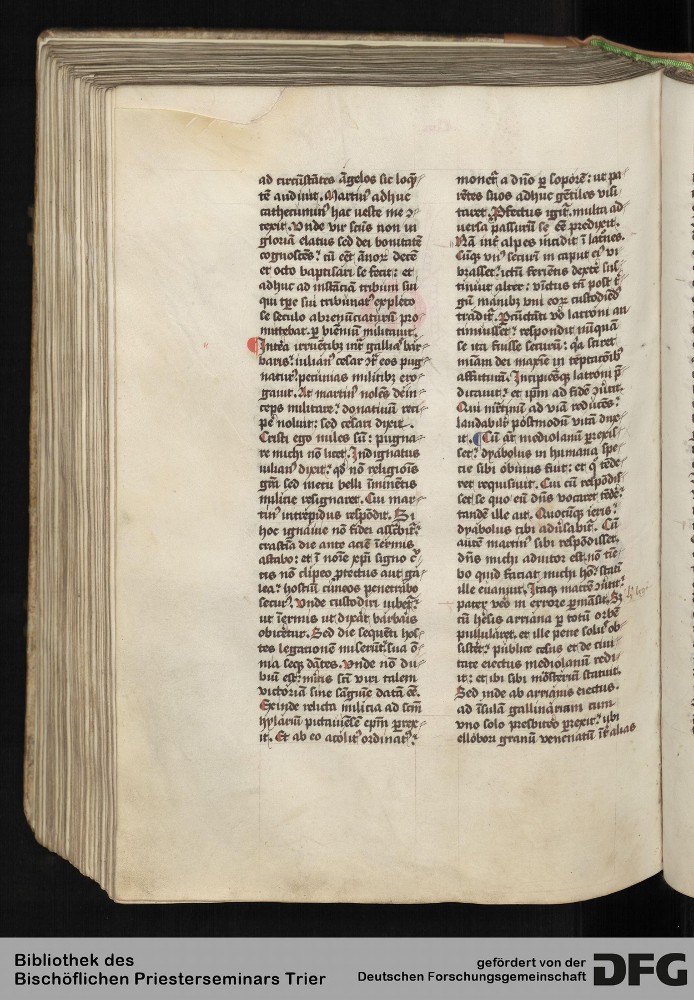 ad circūstātes āgelos sic loq̄
tē audiuit. Martin᷒ adhuc
cathecumin᷒ hac ueste me ꝯ
texit. Unde vir scūs non in
gloriā elatus sed dei bonitatē
cognoscēs: cū eēt ānoꝝ decē
et octo baptisari se fecit: et
adhuc ad instāciā tribuni sui
qui tp̄e sui tribunat᷒ expleto
se seculo abrenūciaturū pro
mittebat. ꝑ biēniū militauit.
Intēa irruētibꝫ int̄ gallias bar
baris: iulian᷒ cesar ꝯt̄ eos pug
natur᷒ pecunias militibꝫ ero
gauit. At martin᷒ nolēs dein
ceps militare: donatiuū reci
pe noluit: sed cesari dixit.
Cristi ego miles sū: pugna
re michi nō licet. Indignatus
iulian᷒ dixit: qd̄ nō religiois
grā sed metu belli īminētis
milicie resignaret. Cui mar
tin᷒ intrepidus respōdit. Si
hoc ignauie nō fidei ascbit̄:
crastīa die ante aciē īermis
astabo: et ī noīe xp̄i signo c᷒
cis nō clipeo ꝓtectus aut ga
lea: hostiū cūneos penetrabo
secur᷒. Unde custodiri iubet̄:
ut īermis ut dixāt barbaris
obicetur. Sed die sequēti hos
tes legationē miserūt: sua ō
nia seqꝫ dātes. Unde nō du
biū est: mītis scī viri talem
victoriā sine sāguīe datā eē.
Exinde relicta milicia ad scm̄
hylariū pictauiēsē epm̄ ꝑrex
it. Et ab eo acolit᷒ ordinat᷒:
monet̄ a dn̄o ꝑ sopore: ut pa
rētes suos adhuc gētiles visi
taret. Ꝓfectus igit̄ multa ad
uersa passurū se eē predixit.
Nā int̄ alpes incidit ī latnes.
Cūqꝫ vn᷒ securī in caput ei᷒ vi
brasset: ictū feriētis dextē sus
tinuit alter: vinctus tn̄ post t̄
gū manibꝫ vni eoꝝ custodiēd᷒
tradit̄. Rcūctāti vō latroni an
timuisset: respondit nūquā
se ita fuisse securū: qa sciret
miam dei maxie in tēptacōibꝫ
affuturā. Incipiēsqꝫ latroni p̄
dicauit: et ipm̄ ad fidē ꝯūtit.
Qui mr̄tinū ad viā reducēs:
laudabilit̄ postmodū vitā dux
it. Cū aūt mediolanū ꝑexis
set: dyabolus in humana spe
cie sibi obuius fuit: et q᷒ tēde
ret requisiuit. Cui cū respōdis
set se quo eū dn̄s vocaret tēde:
tandē ille ait. Quocūqꝫ ieris:
dyabolus tibi aduˢabit̄. Cū
autē martin᷒ sibi respōdisset.
dn̄s michi adiutor est. nō tie
bo quid faciat michi hō: statī
ille euanuit. Itaqꝫ matrē ꝯūtit:
pater vēo in errore ꝑmāsit. Sꝫ
cū hēsis arriana ꝑ totū orbē
pullularet. et ille pene solu᷒ ob
sisteet: publice cesus et de ciui
tate eiectus mediolanū redi
it: et ibi sibi mōsteriū statuit.
Sed inde ab arrianis eiectus.
ad īsulā gallinariam cum
vno solo presbitēo ꝑrexit: ubi
ellebori granū venenatū īt̄ alias